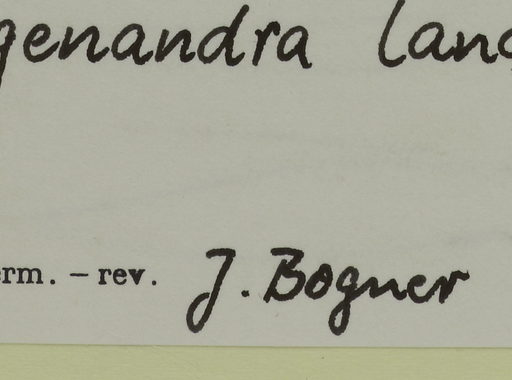 genandra lanc
erm. – rev. J. Bogner